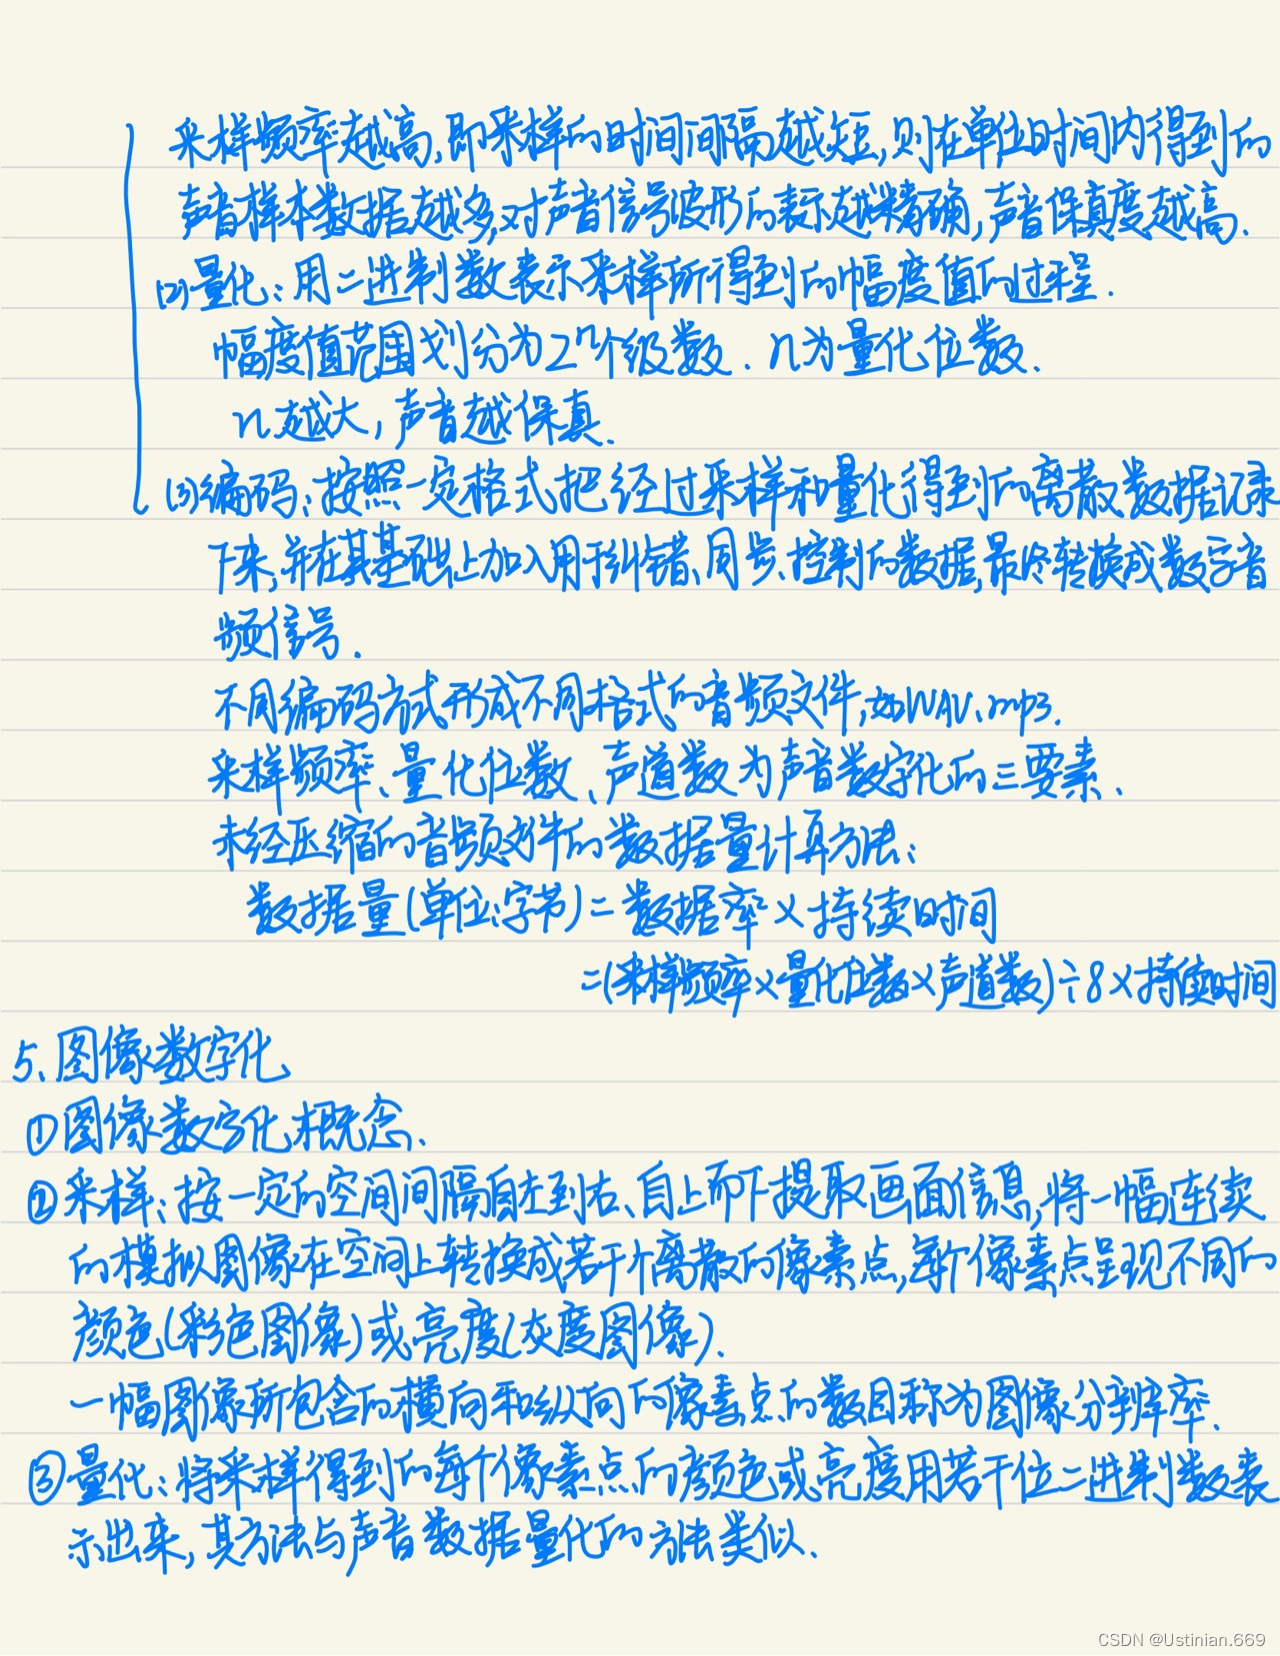 采样频率越高,即采样的时间间隔越短,则在单位时间内得到的
声音样本数据越多,对声音信号波形的表示越精确,声音保真度越高.
(2)量化:用二进制数表示采样所得到的幅度值的过程.
幅度值范围划分为2ⁿ个级数.n为量化位数.
n越大,声音越保真.
(3)编码:按照一定格式把经过采样和量化得到的离散数据记录
下来,并在其基础上加入用于纠错、同步、控制的数据,最终转换成数字音
频信号.
不同编码方式形成不同格式的音频文件,如WAV、mp3.
采样频率、量化位数、声道数为声音数字化的三要素.
未经压缩的音频文件的数据量计算方法:
数据量(单位:字节)=数据率×持续时间
=(采样频率×量化位数×声道数)÷8×持续时间
5、图像数字化
①图像数字化概念.
②采样:按一定的空间间隔自左到右、自上而下提取画面信息,将一幅连续
的模拟图像在空间上转换成若干个离散的像素点,每个像素点呈现不同的
颜色(彩色图像)或亮度(灰度图像).
一幅图像所包含的横向和纵向的像素点的数目称为图像分辨率.
③量化:将采样得到的每个像素点的颜色或亮度用若干位二进制数表
示出来,其方法与声音数据量化的方法类似.
CSDN @Ustinian.669